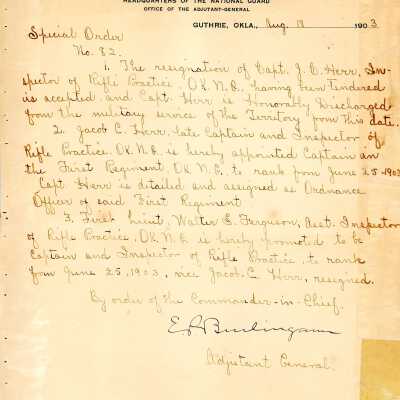 HEADQUARTERS OF THE NATIONAL GUARD
OFFICE OF THE ADJUTANT-GENERAL
GUTHRIE, OKLA., Aug. 18 1903
Special Order
No. 82.
1. The resignation of Capt. J. C. Herr, In-
spector of Rifle Practice, Ok. N. G., having been tendered
is accepted and Capt. Herr is Honorably Discharged
from the military service of the Territory from this date.
2. Jacob C. Herr, late Captain and Inspector of
Rifle Practice, Ok. N. G. is hereby appointed Captain in
the First Regiment, Ok. N. G. to rank from June 25-1903
Capt Herr is detailed and assigned as Ordnance
Officer of said First Regiment
3. First Lieut, Walter S. Ferguson, Asst. Inspector
of Rifle Practice, Ok. N. G. is hereby promoted to be
Captain and Inspector of Rifle Practice, to rank
from June 25, 1903, vice Jacob C. Herr, resigned.
By order of the Commander-in-Chief.
E P Burlingame
Adjutant General.